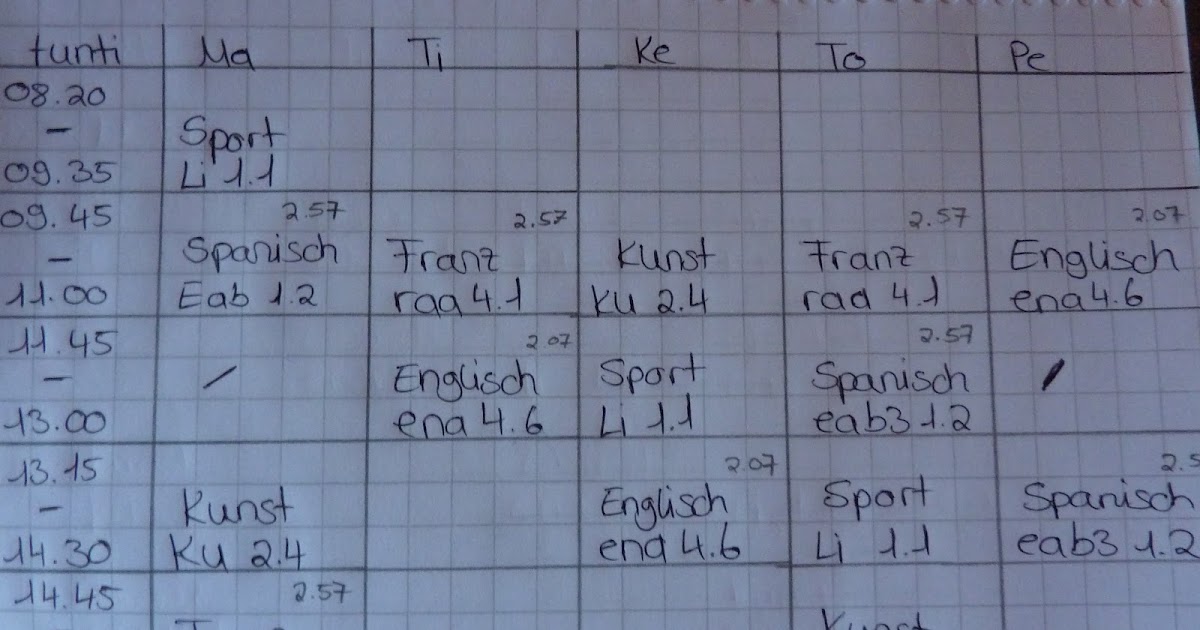 tunti Ma Ti Ke To Pe
08.20
– Sport
09.35 Li 1.1
09.45 2.57 2.57 2.57 2.07
– Spanisch Franz Kunst Franz Englisch
11.00 Eab 1.2 raa 4.1 KU 2.4 raa 4.1 ena 4.6
11.45 2.07 2.57
– / Englisch Sport Spanisch /
13.00 ena 4.6 Li 1.1 eab3 1.2
13.15 2.07 2.5
– Kunst Englisch Sport Spanisch
14.30 KU 2.4 ena 4.6 Li 1.1 eab3 1.2
14.45 2.57
Kunst